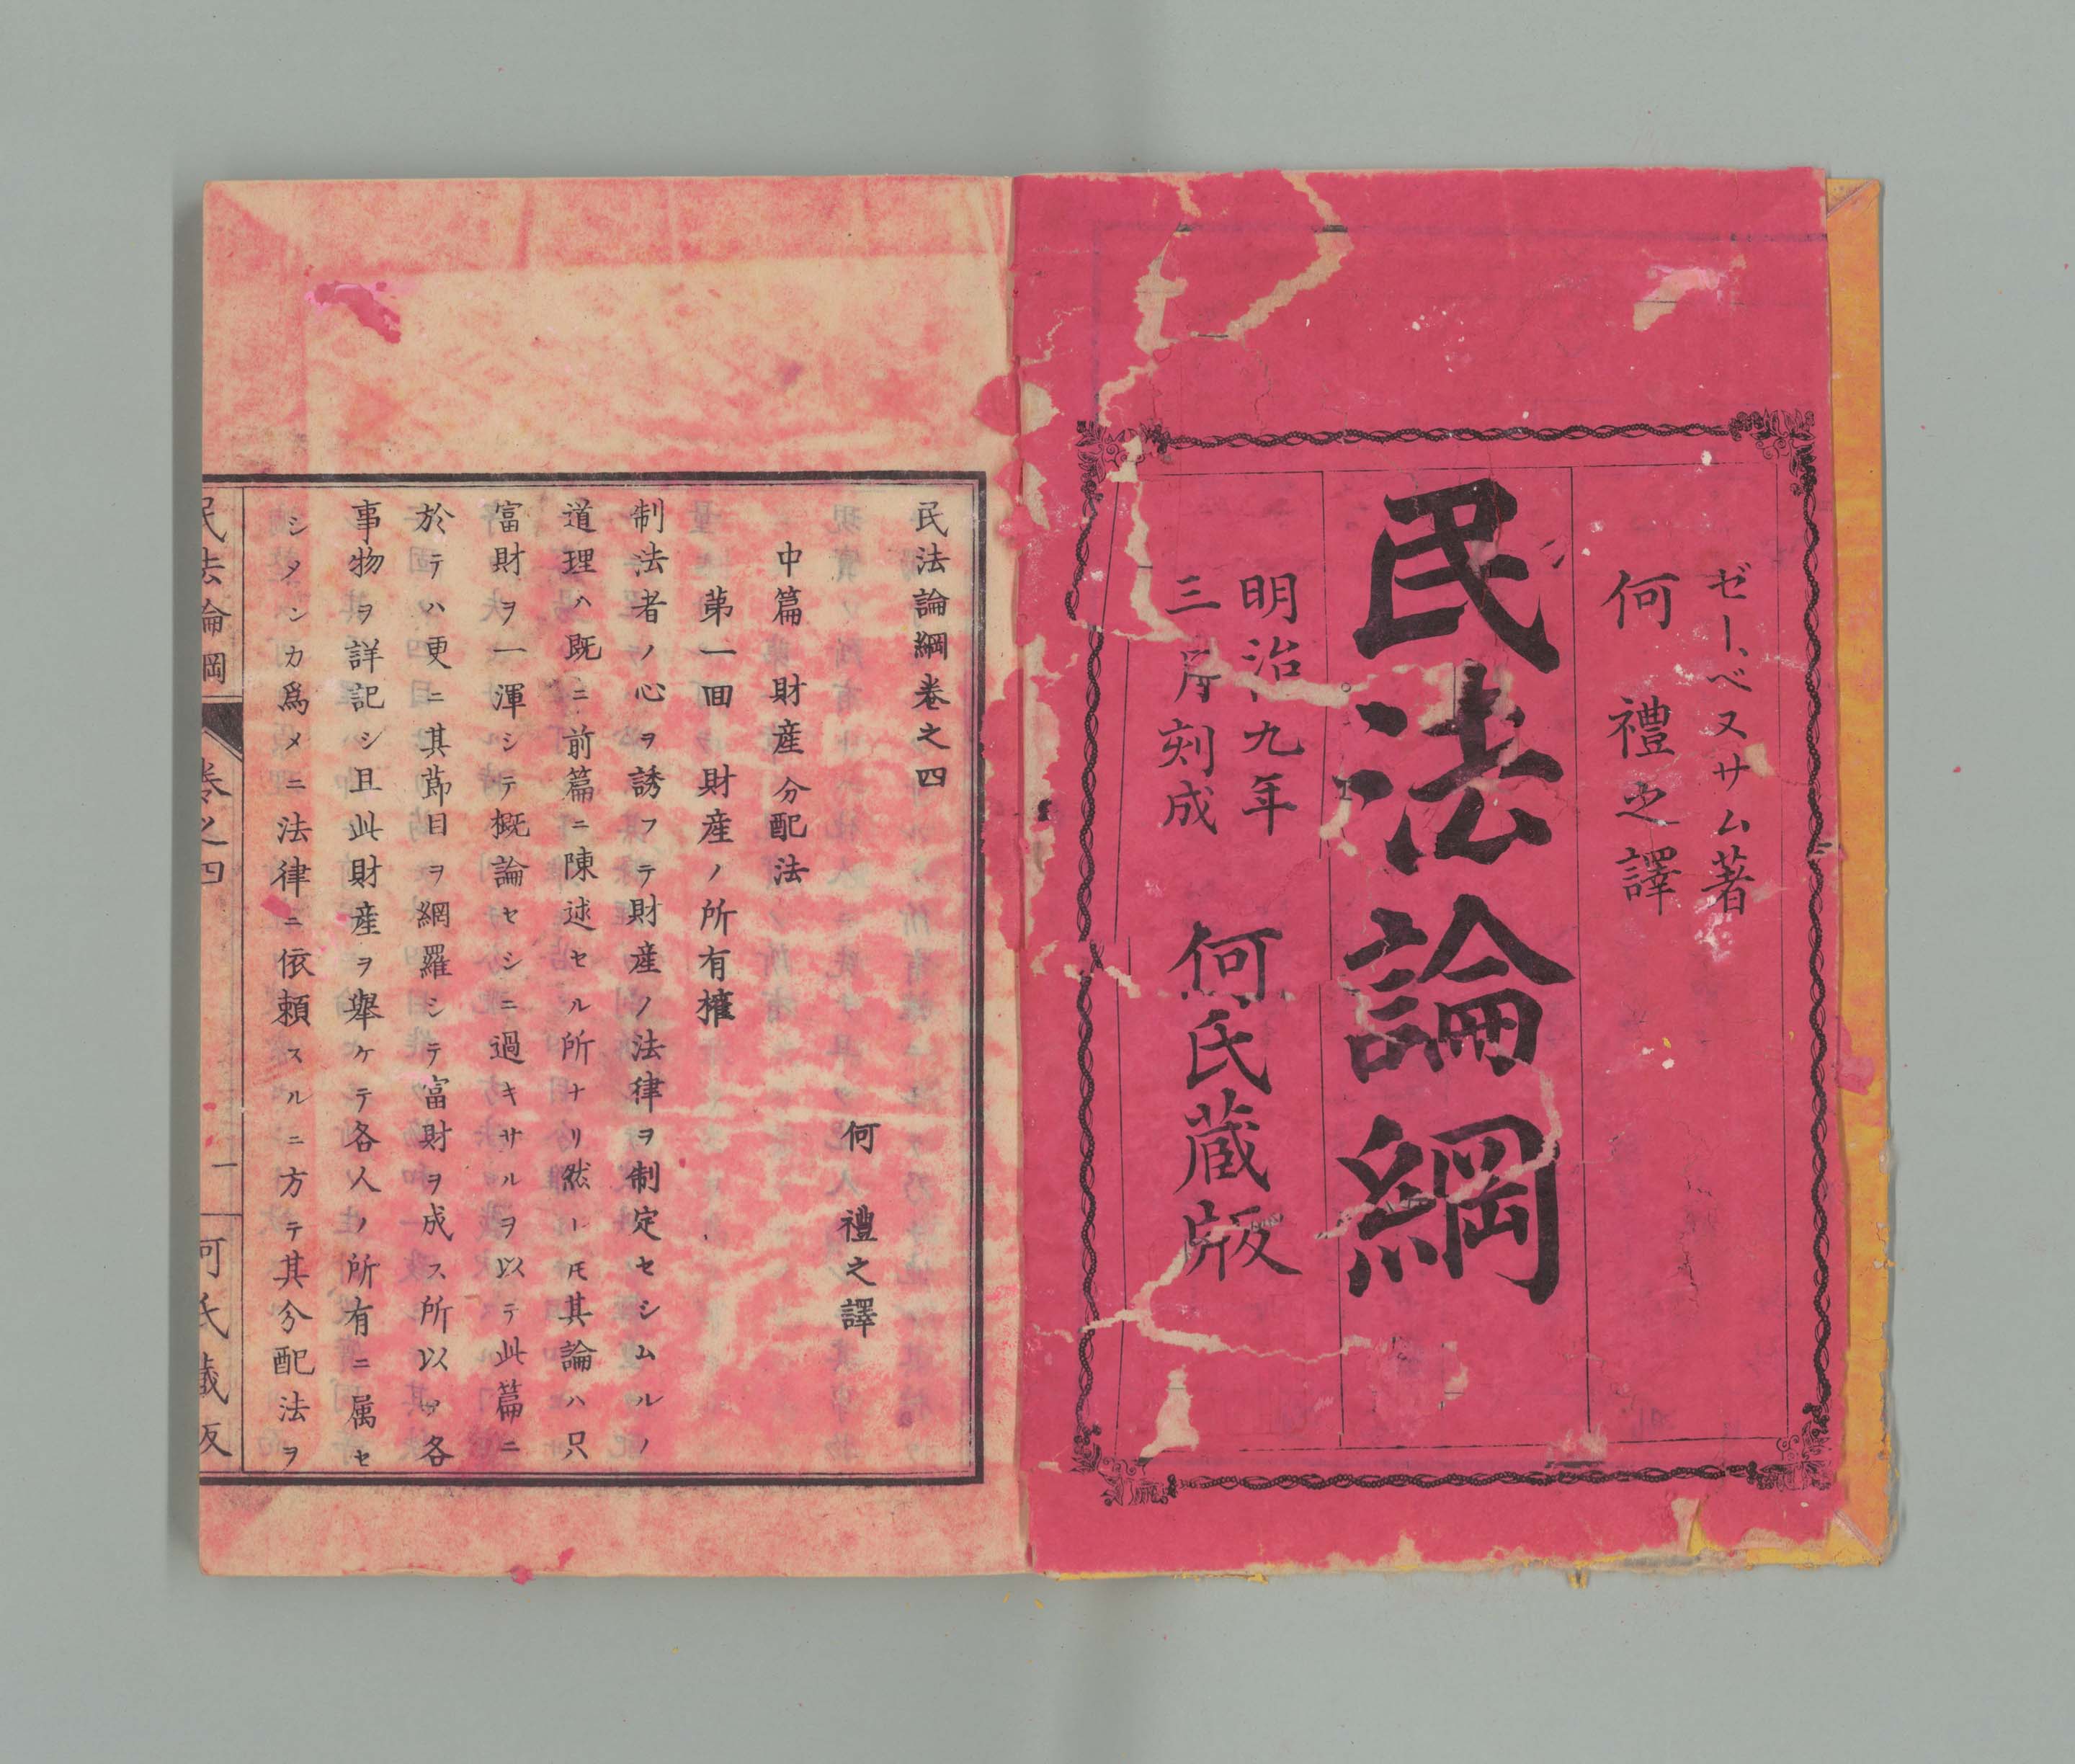 ゼー、ベヌサム著
何禮之譯
民法論綱
明治九年
三月刻成
何氏藏版
民法論綱卷之四
何禮之譯
中篇財產分配法
第一回財產ノ所有權
制法者ノ心ヲ誘フテ財產ノ法律ヲ制定セシムルノ
道理ハ既ニ前篇ニ陳述セル所ナリ然レ𪜈其論ハ只
富財ヲ一渾シテ概論セシニ過キサルヲ以テ此篇ニ
於テハ更ニ其節目ヲ網羅シテ富財ヲ成ス所以ヲ各
事物ヲ詳記シ且此財產ヲ舉ケテ各人ノ所有ニ属セ
シメンカ爲メニ法律ニ依頼スルニ方テ其分配法ヲ
民法論綱
卷之四
一
何氏藏版